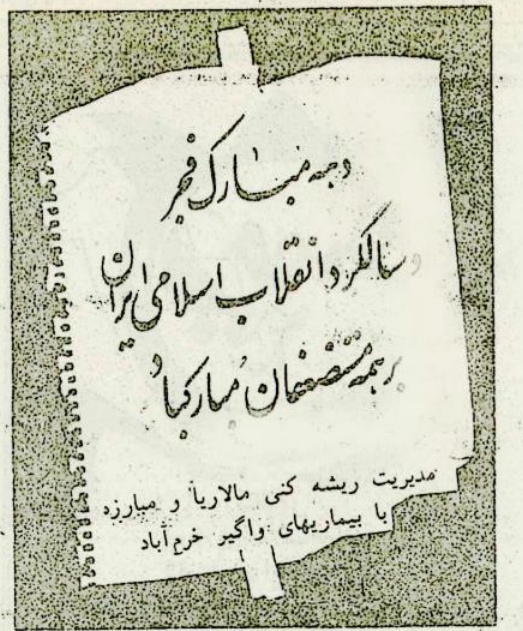 دهه مبارک فجر
و سالگرد انقلاب اسلامی ایران
بر همه مستضعفان مبارکباد
مدیریت ریشه کنی مالاریا و مبارزه
با بیماریهای واگیر خرم‌آباد